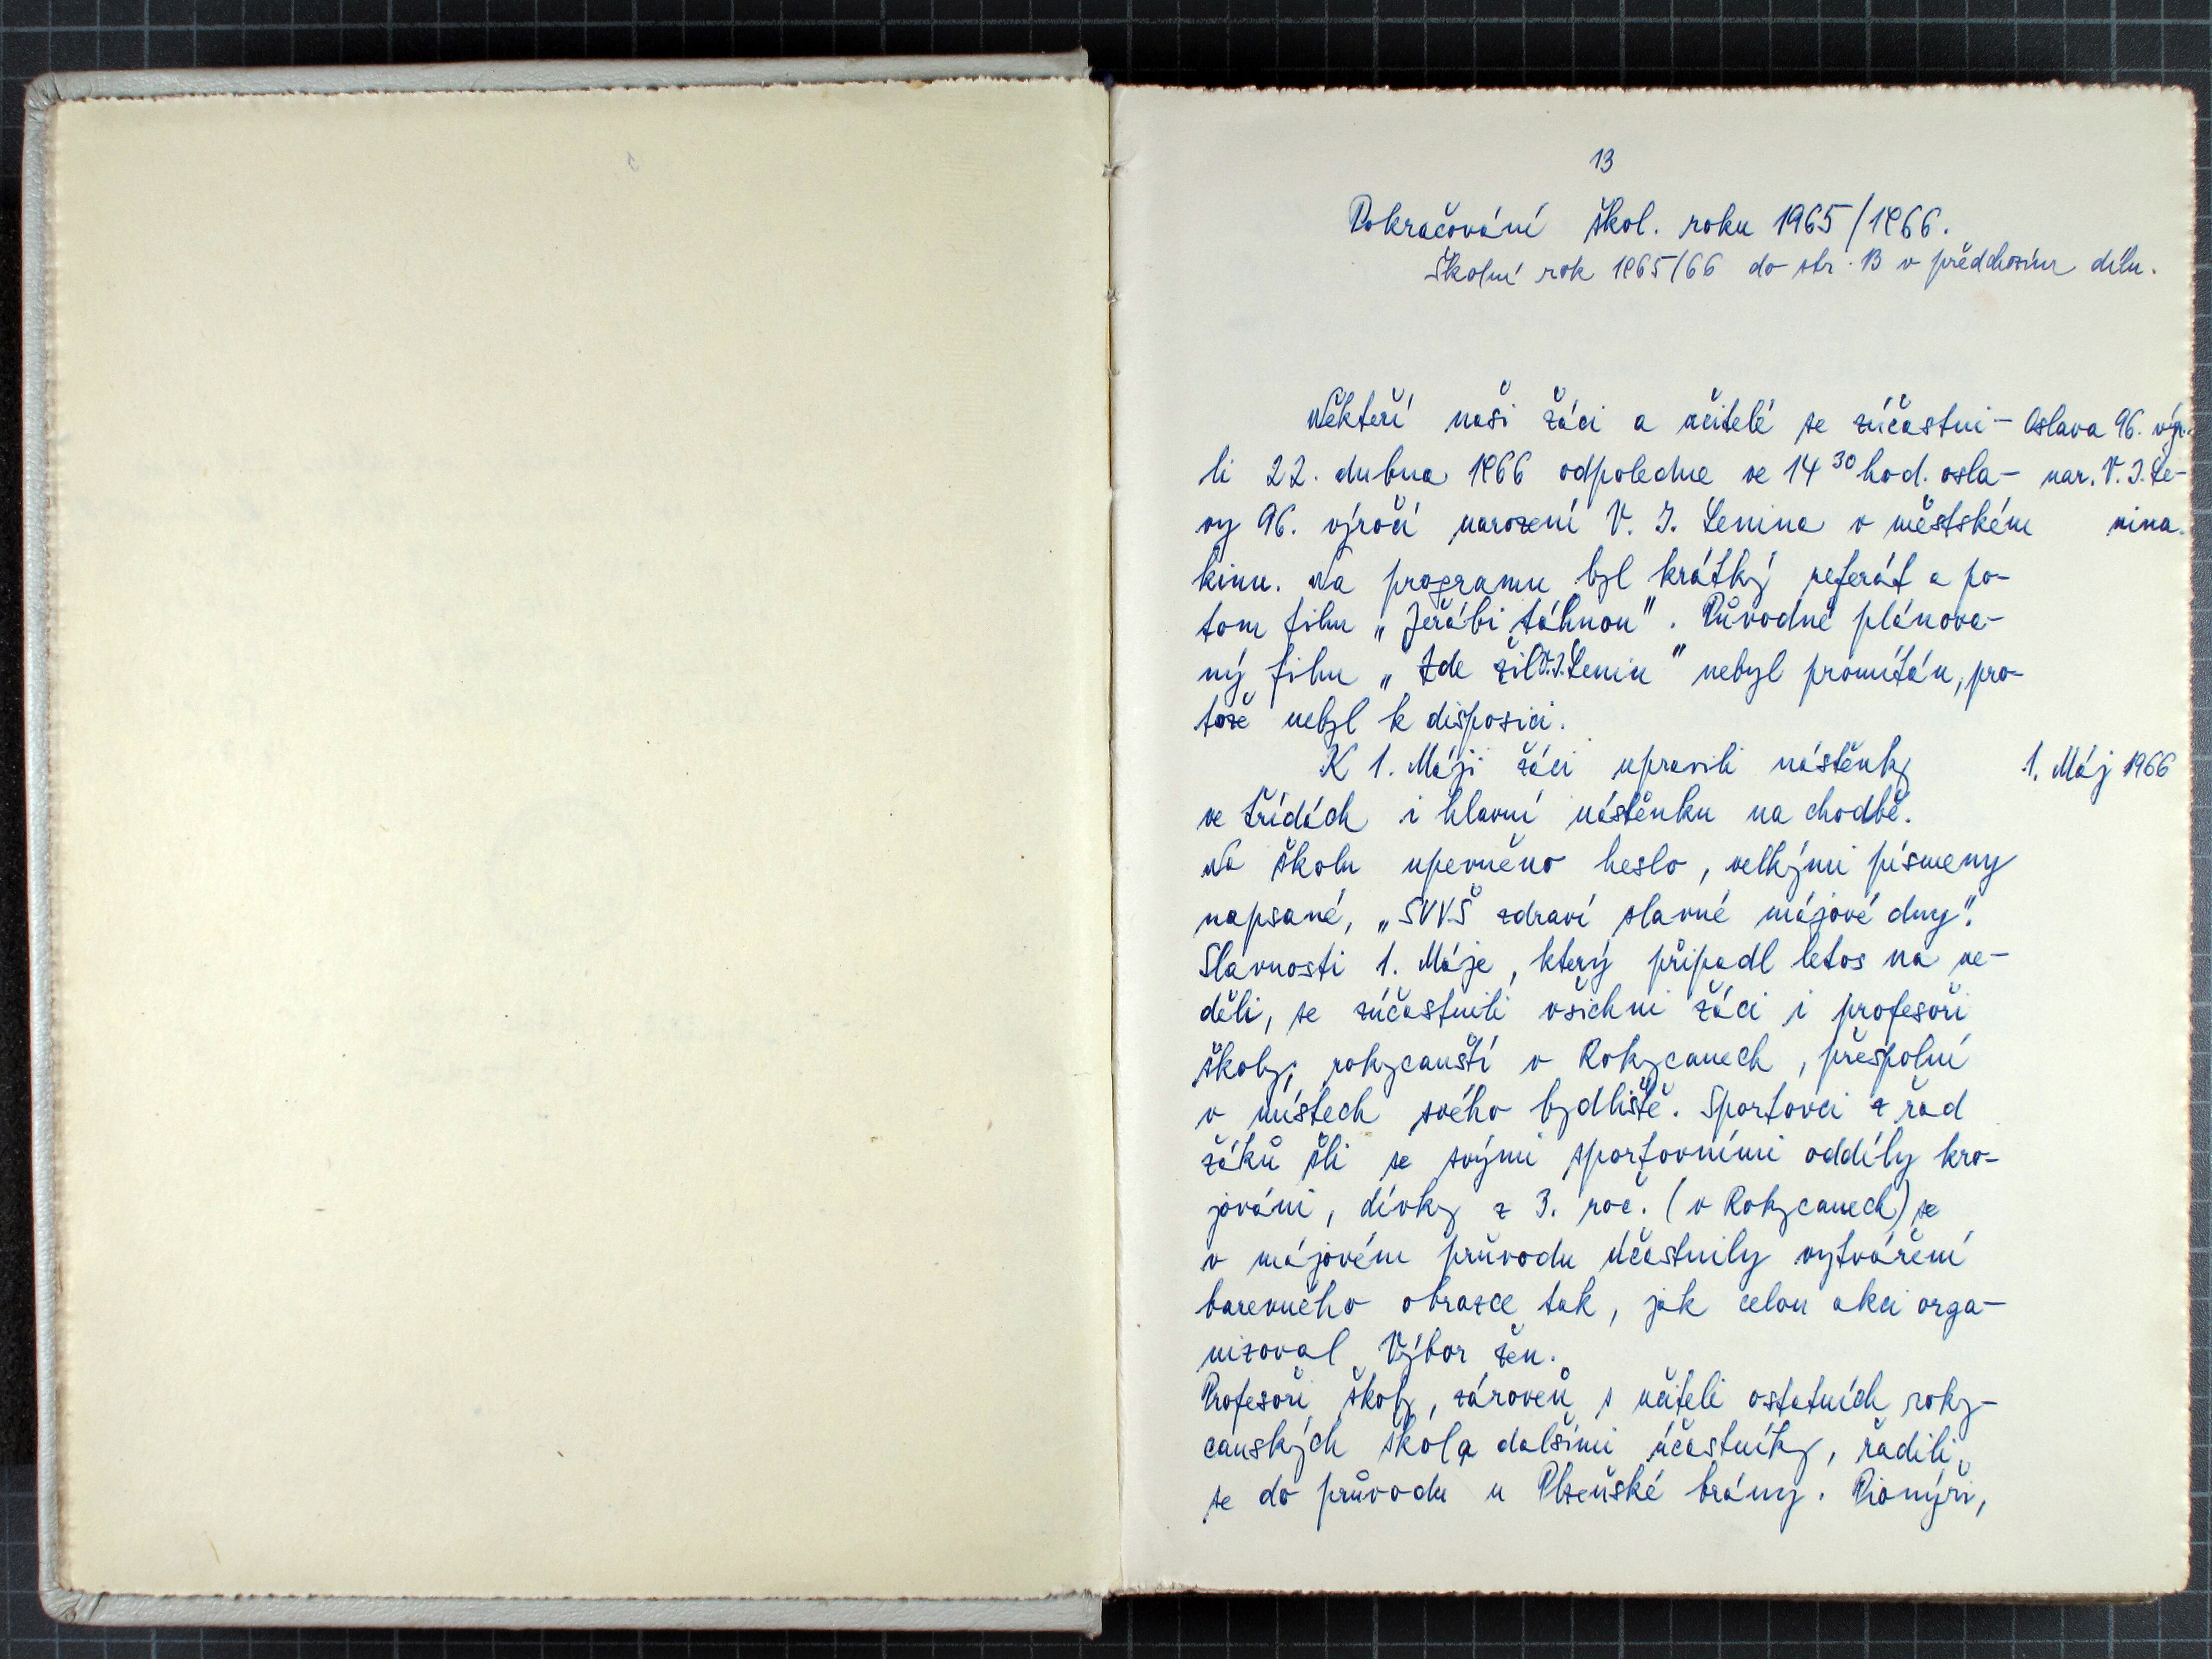 13
Pokračování škol. roku 1965/1966.
Školní rok 1965/66 do str. 13 v předchozím dílu.
Někteří naši žáci a učitelé se zúčastni- Oslava 96. výr.
li 22. dubna 1966 odpoledne ve 14 30 hod. osla- nar. V. I. Le-
vy 96. výročí narození V. I. Lenina v městském nina.
kinu. Na programu byl krátký referát a po-
tom film „Jeřábi táhnou". Původně plánova-
ný film „Zde žil V. I. Lenin" nebyl promítán, pro-
tože nebyl k disposici.
K 1. Máji žáci upravili nástěnky 1. Máj 1966
ve třídách i hlavní nástěnku na chodbě.
Na školu upevněno heslo, velkými písmeny
napsané, „SVVŠ zdraví slavné májové dny".
Slavnosti 1. Máje, který připadl letos na ne-
děli, se zúčastnili všichni žáci i profesoři
školy, rokycanští v Rokycanech, přespolní
v místech svého bydliště. Sportovci z řad
žáků šli se svými sportovními oddíly kro-
jováni, dívky z 3. roč. (v Rokycanech) se
v májovém průvodu účastnily vytváření
barevného obrazce tak, jak celou akci orga-
nizoval Výbor žen.
Profesoři školy, zároveň s učiteli ostatních roky-
canských škol a dalšími účastníky, řadili
se do průvodu u Plzeňské brány. Pionýři,